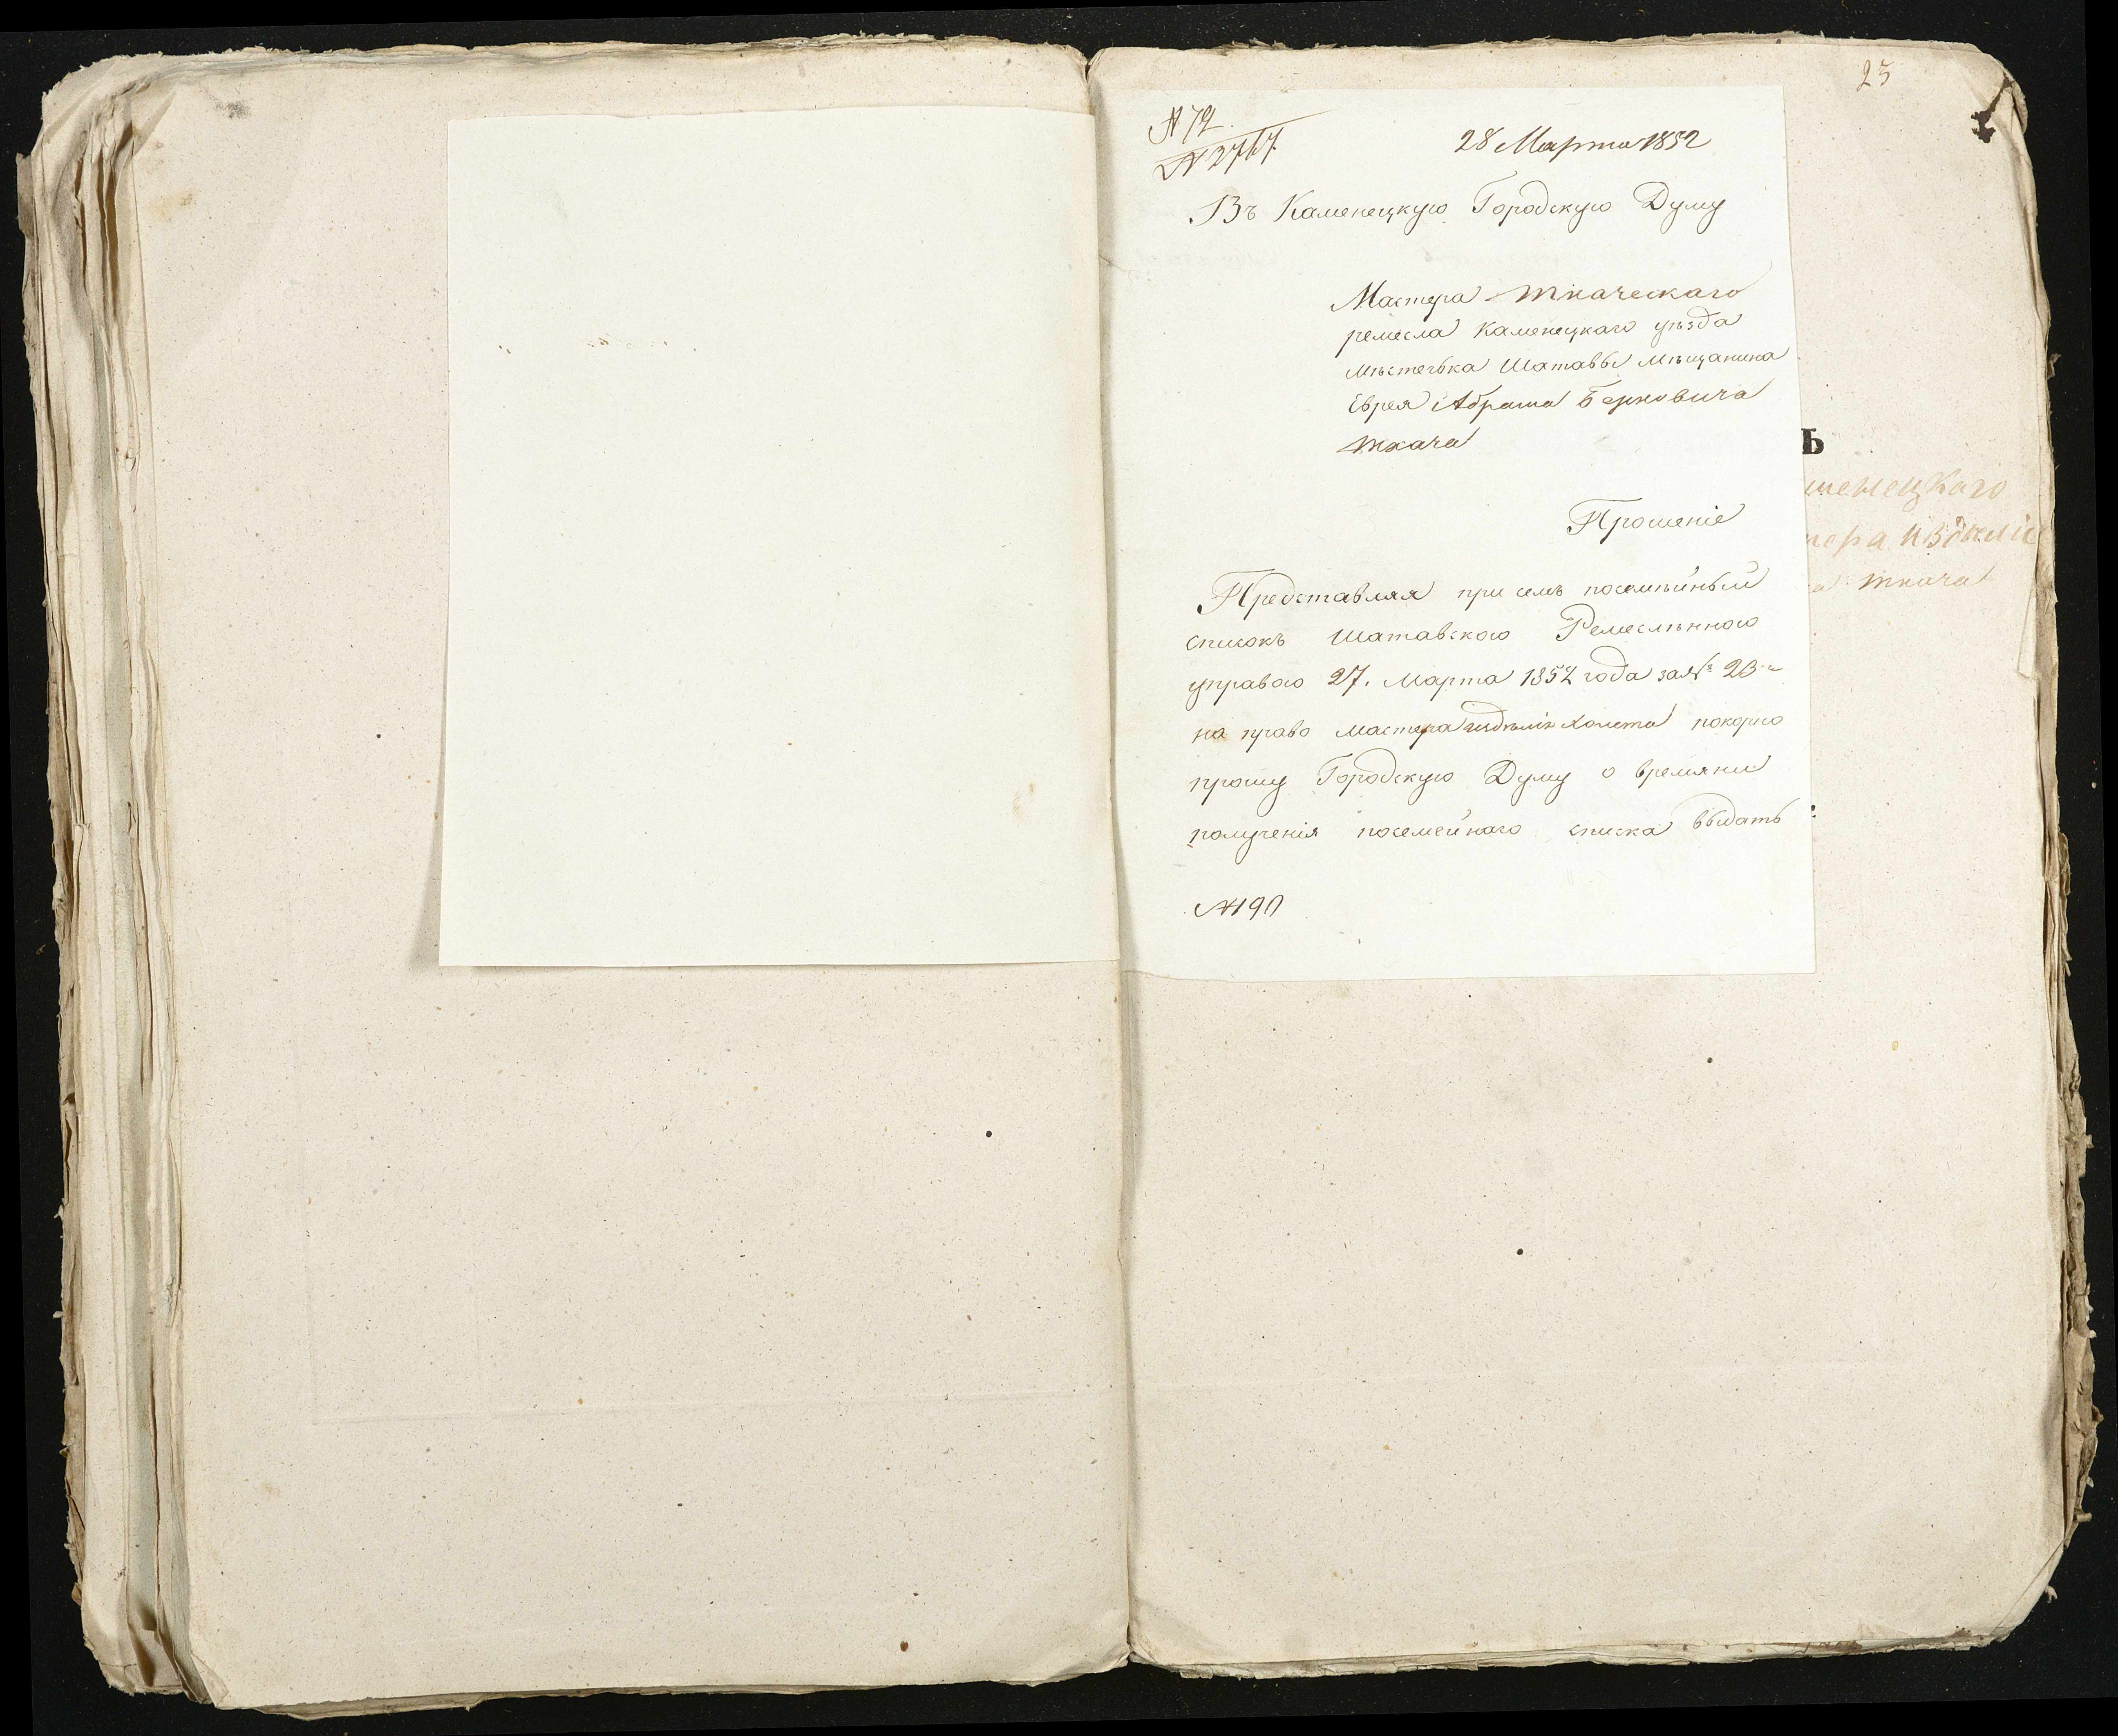 23
№ 72
№ 2767
28 Марта 1852
Въ Каменецкую Городскую Думу
Мастера ткаческаго
ремесла Каменецкаго уѣзда
мѣстечька Шатавы мѣщанина
Еврея Абрама Берковича
Ткача
Прошеніе
Представляя при семъ посемѣйный
списокъ Шатавскою Ремеслѣнною
управою 27. Марта 1852 года за №
на право мастера издѣлія покорно
прошу Городскую Думу о времяни
полученія посемейнаго списка выдать
№ 190
Ь
менецкаго
тера издѣлія
а Ткача